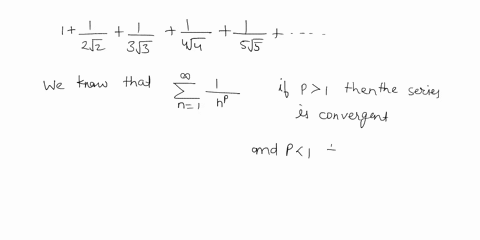 1 + 1/2√2 + 1/3√3 + 1/4√4 + 1/5√5 + .....
We know that ∑_{n=1}^{∞} 1/n^p if p>1 then the series
is convergent
and p<1 ÷